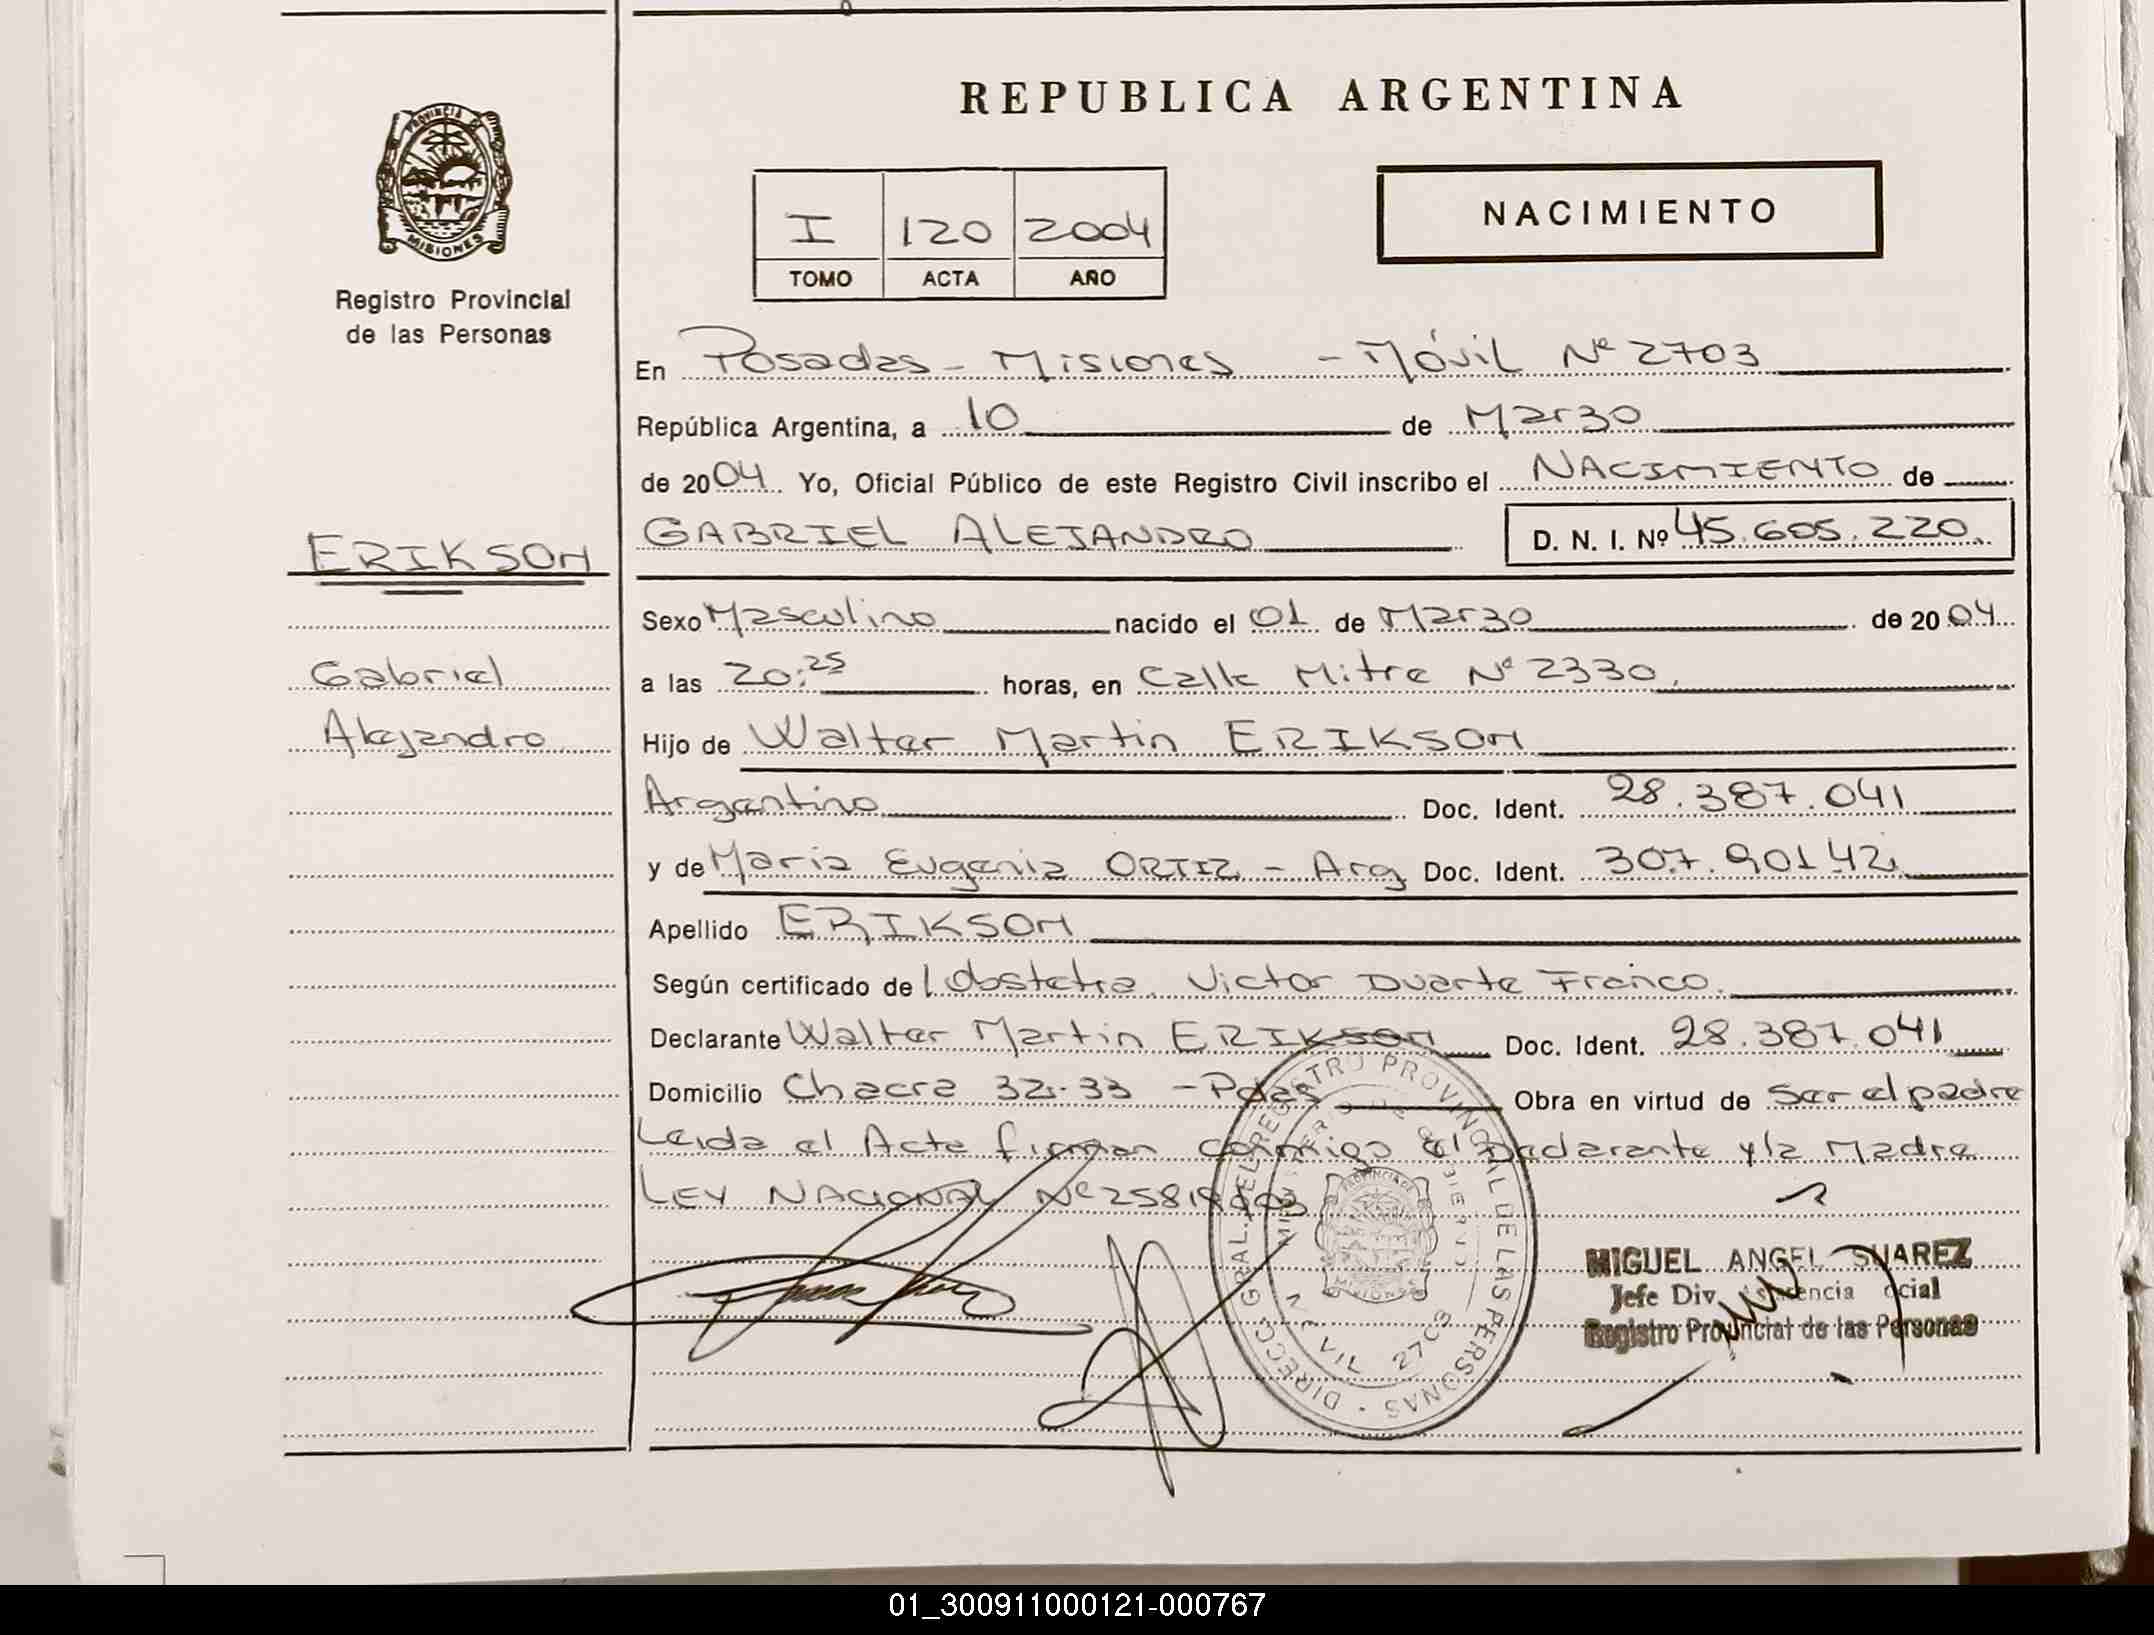 REPUBLICA ARGENTINA
PROVINCIA DE
MISIONES
Registro Provincial
de las Personas
I 120 2004
TOMO ACTA AÑO
NACIMIENTO
En Posadas - Misiones - Móvil Nº 2703
República Argentina, a 10 de Marzo
de 2004 Yo, Oficial Público de este Registro Civil inscribo el NACIMIENTO de
ERIKSON
GABRIEL ALEJANDRO D. N. I. Nº 45.605.220
Sexo Masculino nacido el 01 de Marzo de 2004
Gabriel
a las 20:25 horas, en Calle Mitre Nº 2330.
Alejandro
Hijo de Walter Martin ERIKSON
Argentino Doc. Ident. 28.387.041
y de Maria Eugenia ORTIZ - Arg Doc. Ident. 307.90142
Apellido ERIKSON
Según certificado de Obstetra Victor Duarte Franco.
Declarante Walter Martin ERIKSON Doc. Ident. 28.387.041
Domicilio Chacra 32-33 - Pdas Obra en virtud de Ser el padre
Leida el Acta firman conmigo El Declarante y la Madre
LEY NACIONAL Nº 25819/03
DIRECC. GRAL. DEL REGISTRO PROVINCIAL DE LAS PERSONAS
MOVIL 2703
MIGUEL ANGEL SUAREZ
Jefe Div.
Registro Provincial de las Personas
01_300911000121-000767